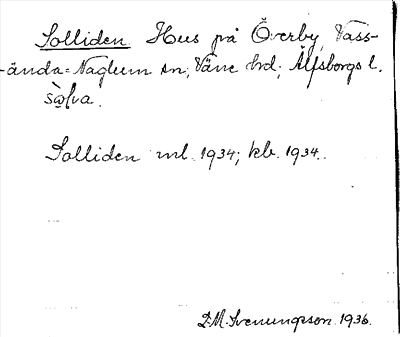 Solliden Hus på Överby, Vass-
-ända-Naglum sn, Väne hd, Älfsborgs l.
Solliden ml. 1934; kb. 1934.
D.M. Svenungsson 1936.